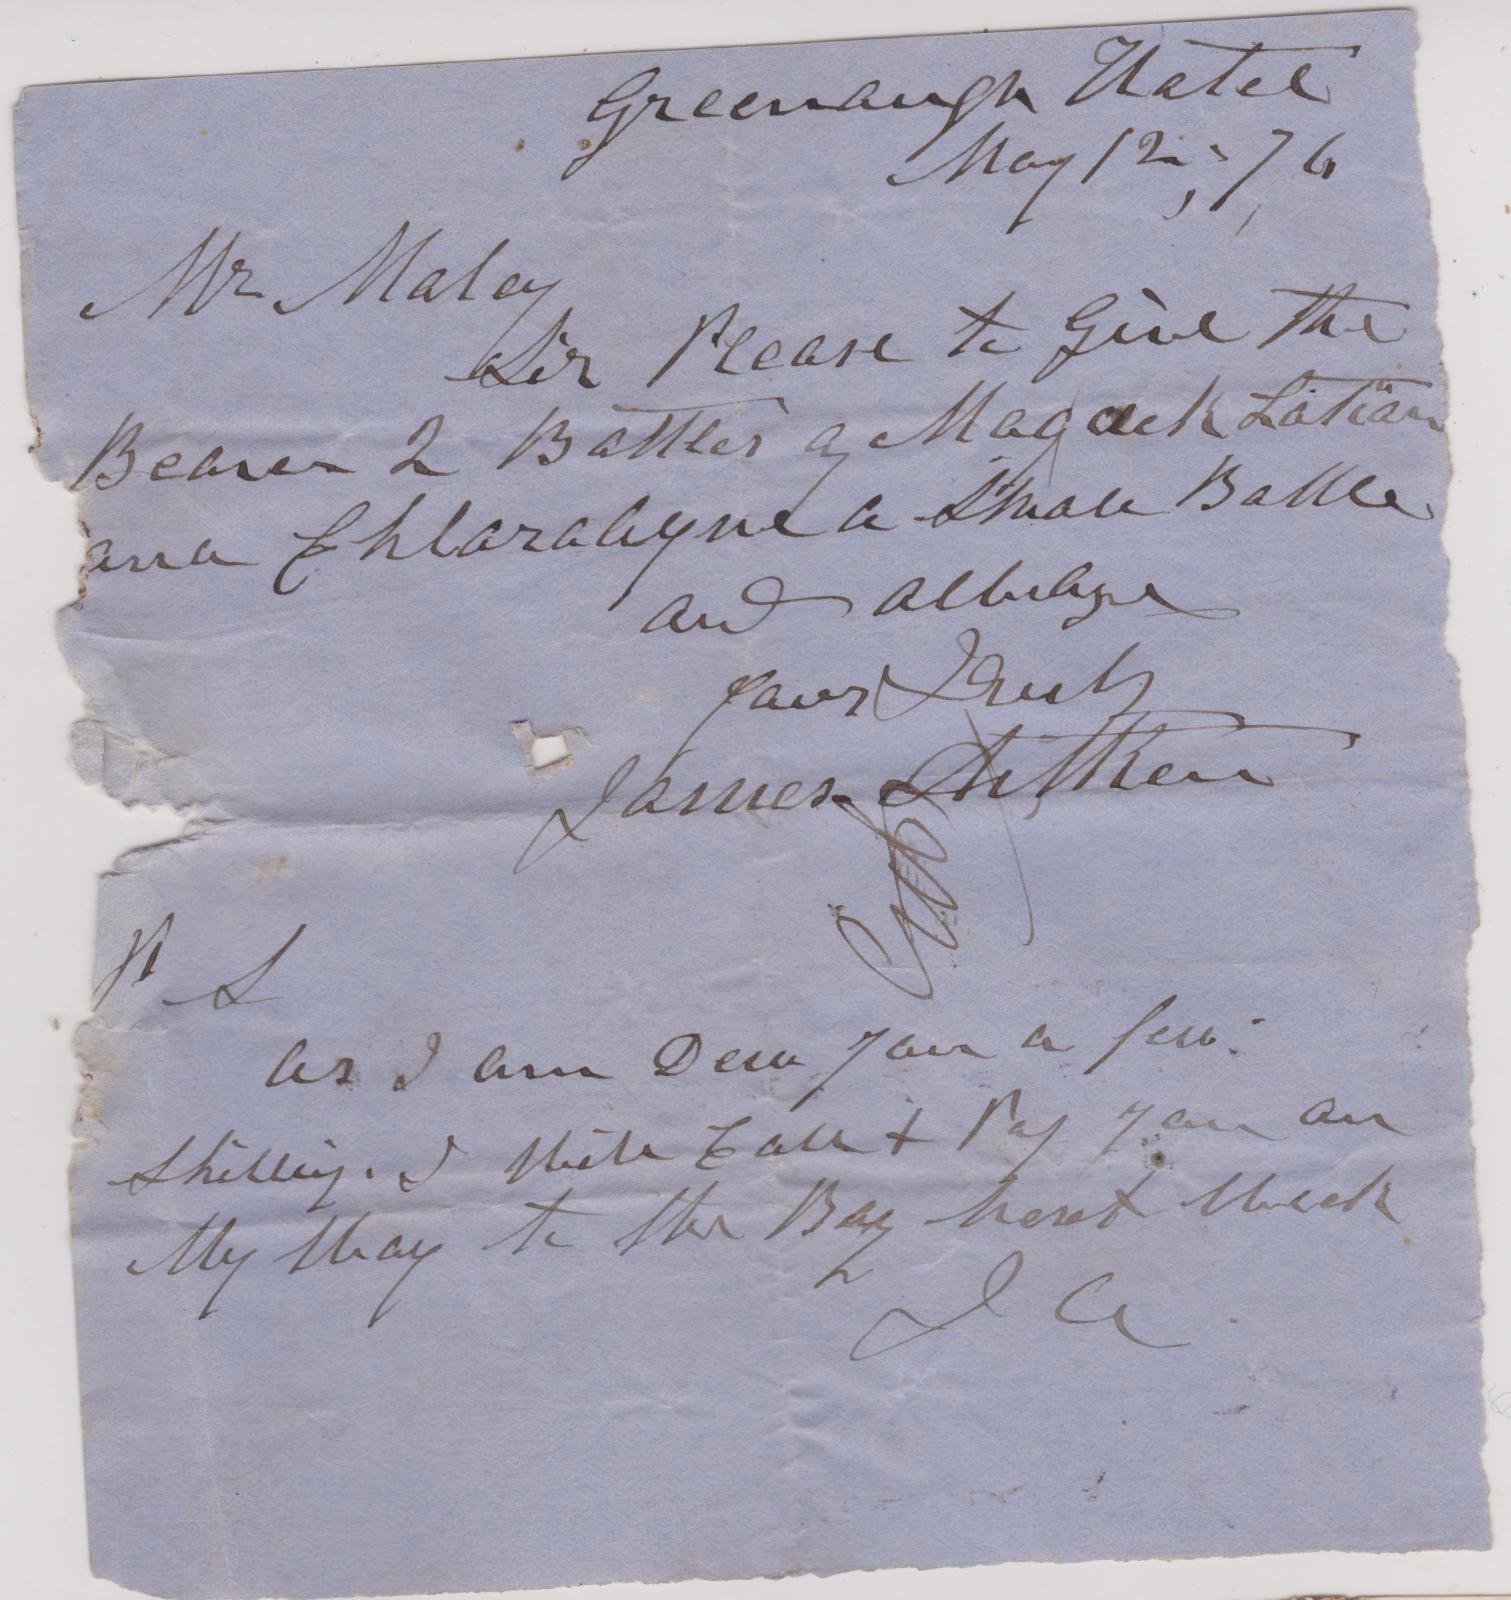 Greenough Hotel
May 12, 76
Mr Maley
Sir Please to Give the
Bearer 2 Bottles of Magick Lotion
and Chlorodyne a Small Bottle
and oblidge
yours Truly
James Aitken
P S
as I am Deu you a few
shilling. I Will Call & Pay you on
My Way to the Bay next Week
J A